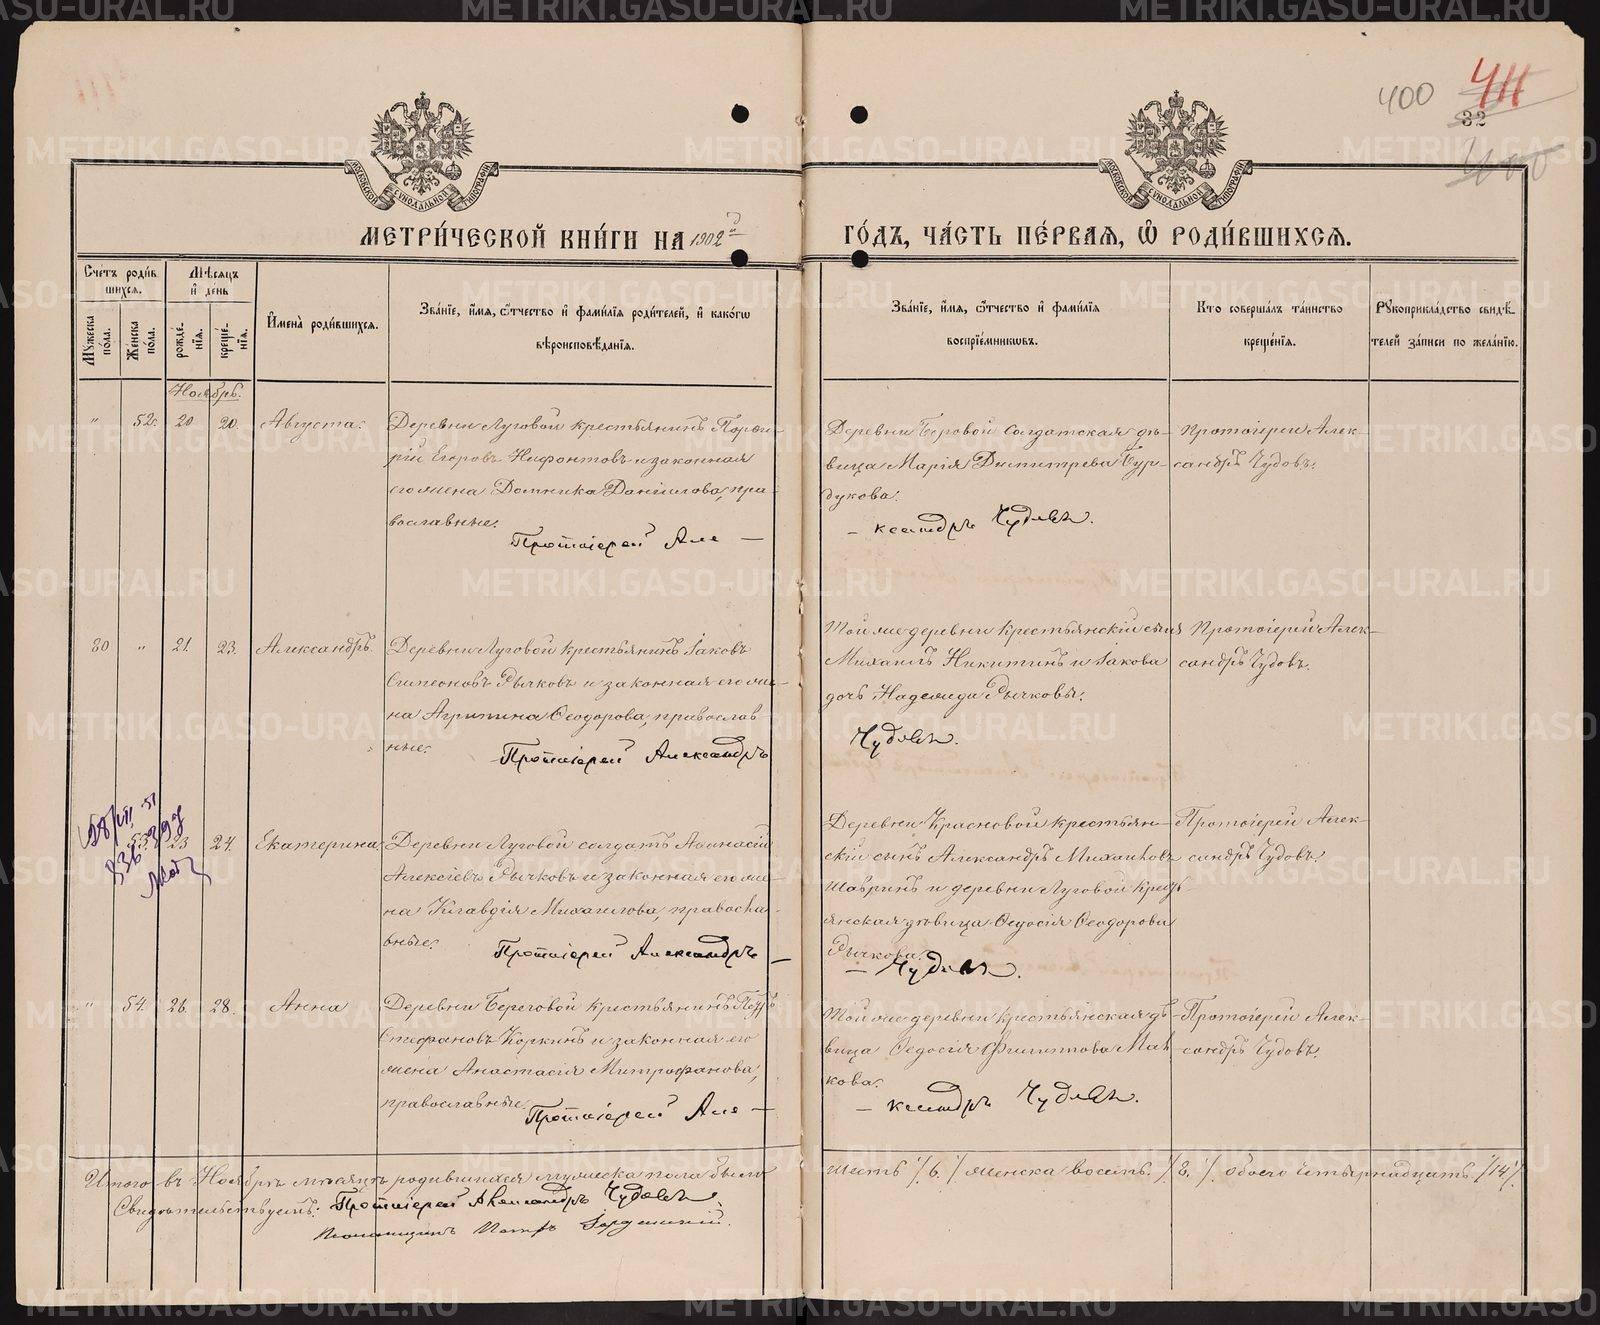 400
411
32
400
МОСКОВСКОЙ СѴНОДАЛЬНОЙ ТИПОГРАФІИ
МОСКОВСКОЙ СѴНОДАЛЬНОЙ ТИПОГРАФІИ
МЕТРИ́ЧЕСКОЙ КНИ́ГИ НА 1902й
ГО́ДЪ, ЧА́СТЬ ПЕ́РВАЯ, Ѡ҆ РОДИ́ВШИХСЯ.
Сче́тъ роди́в
шихся.
Мѣ́сяцъ
и҆ де́нь
Мꙋ́жеска по́ла.
Же́нска по́ла.
рожде́нїя.
креще́нїя.
И҆мена̀ роди́вшихся.
Зва́нїе, и҆́мя, ѻ҆́тчество и҆ фами́лїя роди́телей, и҆ како́гѡ
вѣроисповѣ́данїя.
Зва́нїе, и҆́мя, ѻ҆́тчество и҆ фами́лїя
воспрїе́мникѡвъ.
Кто̀ соверша́лъ та́инство
креще́нїя.
Рꙋкоприкла́дство свидѣ́-
телей за́писи по жела́нїю.
Ноябрь.
" 52. 20 20. Августа.
Деревни Луговой крестьянинъ Порфи-
рій Егоровъ Нифонтовъ и законная
его жена Домника Даніилова, пра-
вославные.
Протоіерей Але —
Деревни Беровой солдатская дѣ-
вица Марія Димитрева Бур-
дукова.
— ксандръ Чудовъ.
Протоіерей Алек-
сандръ Чудовъ.
30 " 21. 23. Александръ.
Деревни Луговой крестьянинъ Іаковъ
Симеоновъ Рычковъ и законная его же-
на Агрипина Ѳеодорова, православ-
ные.
Протоіерей Александръ
Той же деревни крестьянскій сынъ
Михаилъ Никитинъ и Іакова
дочь Надежда Рычковы.
Чудовъ.
Протоіерей Алек-
сандръ Чудовъ.
53. 23 24. Екатерина
Деревни Луговой солдатъ Аѳанасій
Алексіевъ Рычковъ и законная его же-
на Клавдія Михаилова, правосла-
вные.
Протоіерей Александръ —
Деревни Красновой крестьян-
скій сынъ Александръ Михаиловъ
Шавринъ и деревни Луговой крест-
янская дѣвица Ѳедосія Ѳеодорова
Рычкова.
— Чудовъ.
Протоіерей Алек-
сандръ Чудовъ.
" 54. 26. 28. Анна
Деревни Береговой крестьянинъ Петръ
Стефановъ Коркинъ и законная его
жена Анастасія Митрофанова,
православные.
Протоіерей Але —
Той же деревни крестьянская дѣ-
вица Ѳедосія Филиппова Мал-
кова.
— ксандръ Чудовъ.
Протоіерей Алек-
сандръ Чудовъ.
Итого въ Ноябрѣ мѣсяцѣ родившихся мужеска пола было
шесть /6./ женска восемь. /8./ обоего четырнадцать /14/.
Свидѣтельствуемъ: Протоіерей Александръ Чудовъ.
Псаломщикъ Петръ
METRIKI.GASO-URAL.RU